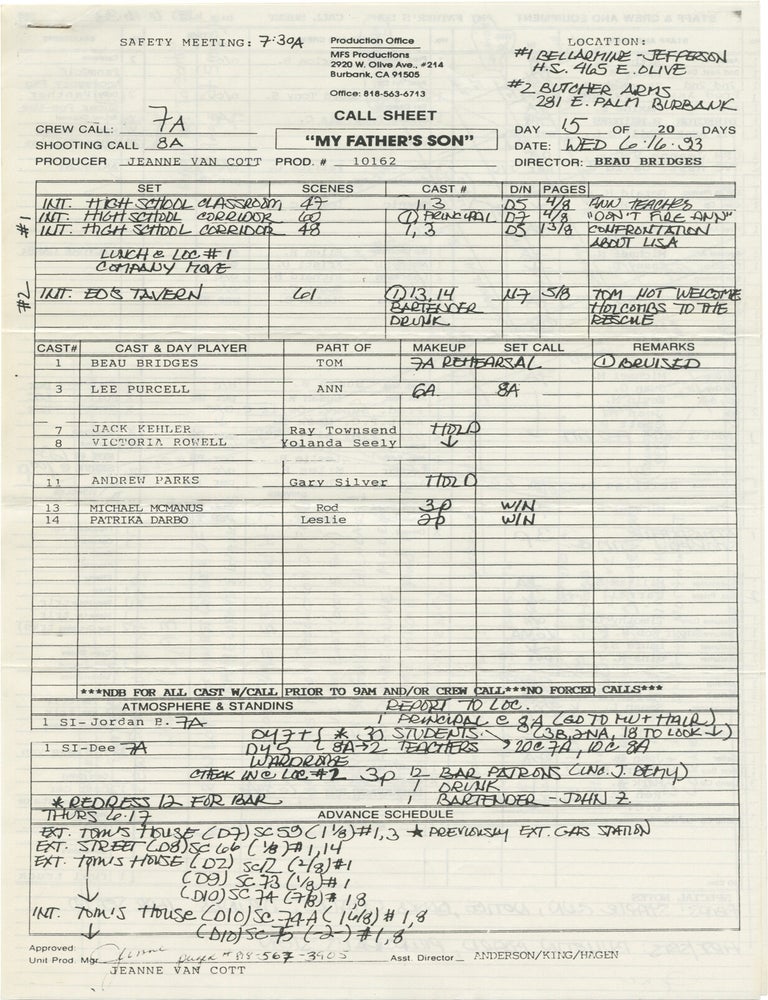 SAFETY MEETING: 7:30A
Production Office
MFS Productions
2920 W. Olive Ave., #214
Burbank, CA 91505
Office: 818-563-6713
LOCATION:
#1 BELLARMINE - JEFFERSON
H.S. 465 E. OLIVE
#2 BUTCHER ARMS
281 E. PALM BURBANK
CALL SHEET
"MY FATHER'S SON"
CREW CALL: 7A
SHOOTING CALL 8A
PRODUCER JEANNE VAN COTT PROD. # 10162
DAY 15 OF 20 DAYS
DATE: WED 6·16·93
DIRECTOR: BEAU BRIDGES
SET SCENES CAST # D/N PAGES
#1
INT. HIGH SCHOOL CLASSROOM 47 1,3 D5 4/8 ANN TEACHES
INT. HIGH SCHOOL CORRIDOR 60 (1) PRINCIPAL D7 4/8 "DON'T FIRE ANN"
INT. HIGH SCHOOL CORRIDOR 48 1,3 D5 1 3/8 CONFRONTATION
ABOUT LISA
LUNCH @ LOC #1
COMPANY MOVE
#2
INT. ED'S TAVERN 61 (1) 13,14 N7 5/8 TOM NOT WELCOME
BARTENDER HOLCOMBS TO THE
DRUNK RESCUE
CAST# CAST & DAY PLAYER PART OF MAKEUP SET CALL REMARKS
1 BEAU BRIDGES TOM 7A REHEARSAL (1) BRUISED
3 LEE PURCELL ANN 6A 8A
7 JACK KEHLER Ray Townsend HOLD
8 VICTORIA ROWELL Yolanda Seely ↓
11 ANDREW PARKS Gary Silver HOLD
13 MICHAEL MCMANUS Rod 3p W/N
14 PATRIKA DARBO Leslie 2p W/N
***NDB FOR ALL CAST W/CALL PRIOR TO 9AM AND/OR CREW CALL***NO FORCED CALLS***
ATMOSPHERE & STANDINS REPORT TO LOC.
1 SI-Jordan B. 7A 1 PRINCIPAL @ 8A (GO TO MU + HAIR)
DY 7 + { * 30 STUDENTS (3B, 2NA, 18 TO LOOK ↓)
1 SI-Dee 7A DY 5 { 8A→2 TEACHERS 20@7A, 10@8A
WARDROBE
CHECK IN @ LOC #2 3p 12 BAR PATRONS (INC. J. DEMY)
1 DRUNK
* REDRESS 12 FOR BAR 1 BARTENDER - JOHN Z.
THURS 6·17 ADVANCE SCHEDULE
EXT. TOM'S HOUSE (D7) SC 59 (1/8) #1,3 * PREVIOUSLY EXT. GAS STATION
EXT. STREET (D8) SC 66 (1/8) #1,14
EXT. TOM'S HOUSE (D2) SC 12 (2/8) #1
(D9) SC 73 (1/8) #1
↓ (D10) SC 74 (7/8) #1,8
INT. TOM'S HOUSE (D10) SC 74A (1 6/8) #1,8
↓ (D10) SC 75 (-2-) #1,8
Approved:
Unit Prod. Mgr. 818-567-3905 Asst. Director ANDERSON/KING/HAGEN
JEANNE VAN COTT